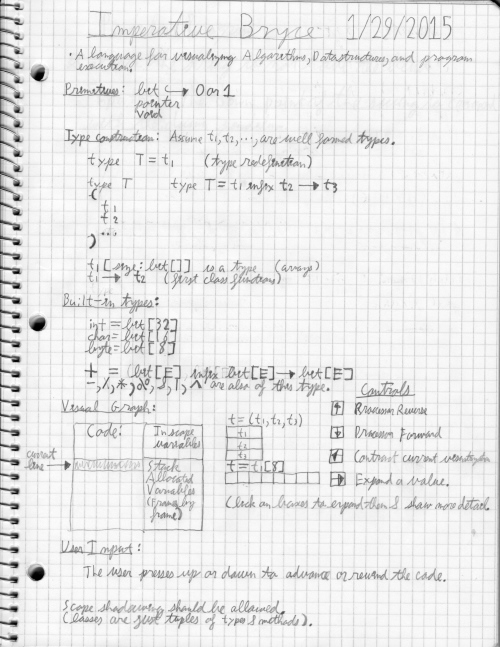 Imperative Bryce 1/29/2015
· A language for visualizing Algorithms, Datastructures, and program
execution.
Primitives: bit → 0 or 1
pointer
void
Type construction: Assume t1, t2, ..., are well formed types.
type T = t1 (type redefinition)
type T type T = t1 infix t2 → t3
(
t1
t2
...
)
t1 [size: bit[]] is a type (arrays)
t1 → t2 (first class functions)
Built-in types:
int = bit[32]
char = bit[16]
byte = bit[8]
+ = bit[E] infix bit[E] → bit[E]
-, /, *, %, &, |, ^ are also of this type.
Controls
Visual Graph:
Code: In scope
variables
current
line
Stack
Allocated
Variables
(Frame by
frame)
t = (t1, t2, t3)
t1
t2
t3
t = t1[8]
Processor Reverse
Processor Forward
Contract current visualization
Expand a value.
Click on boxes to expand them & show more detail.
User Input:
The user presses up or down to advance or rewind the code.
Scope shadowing should be allowed.
(Classes are just tuples of types & methods).